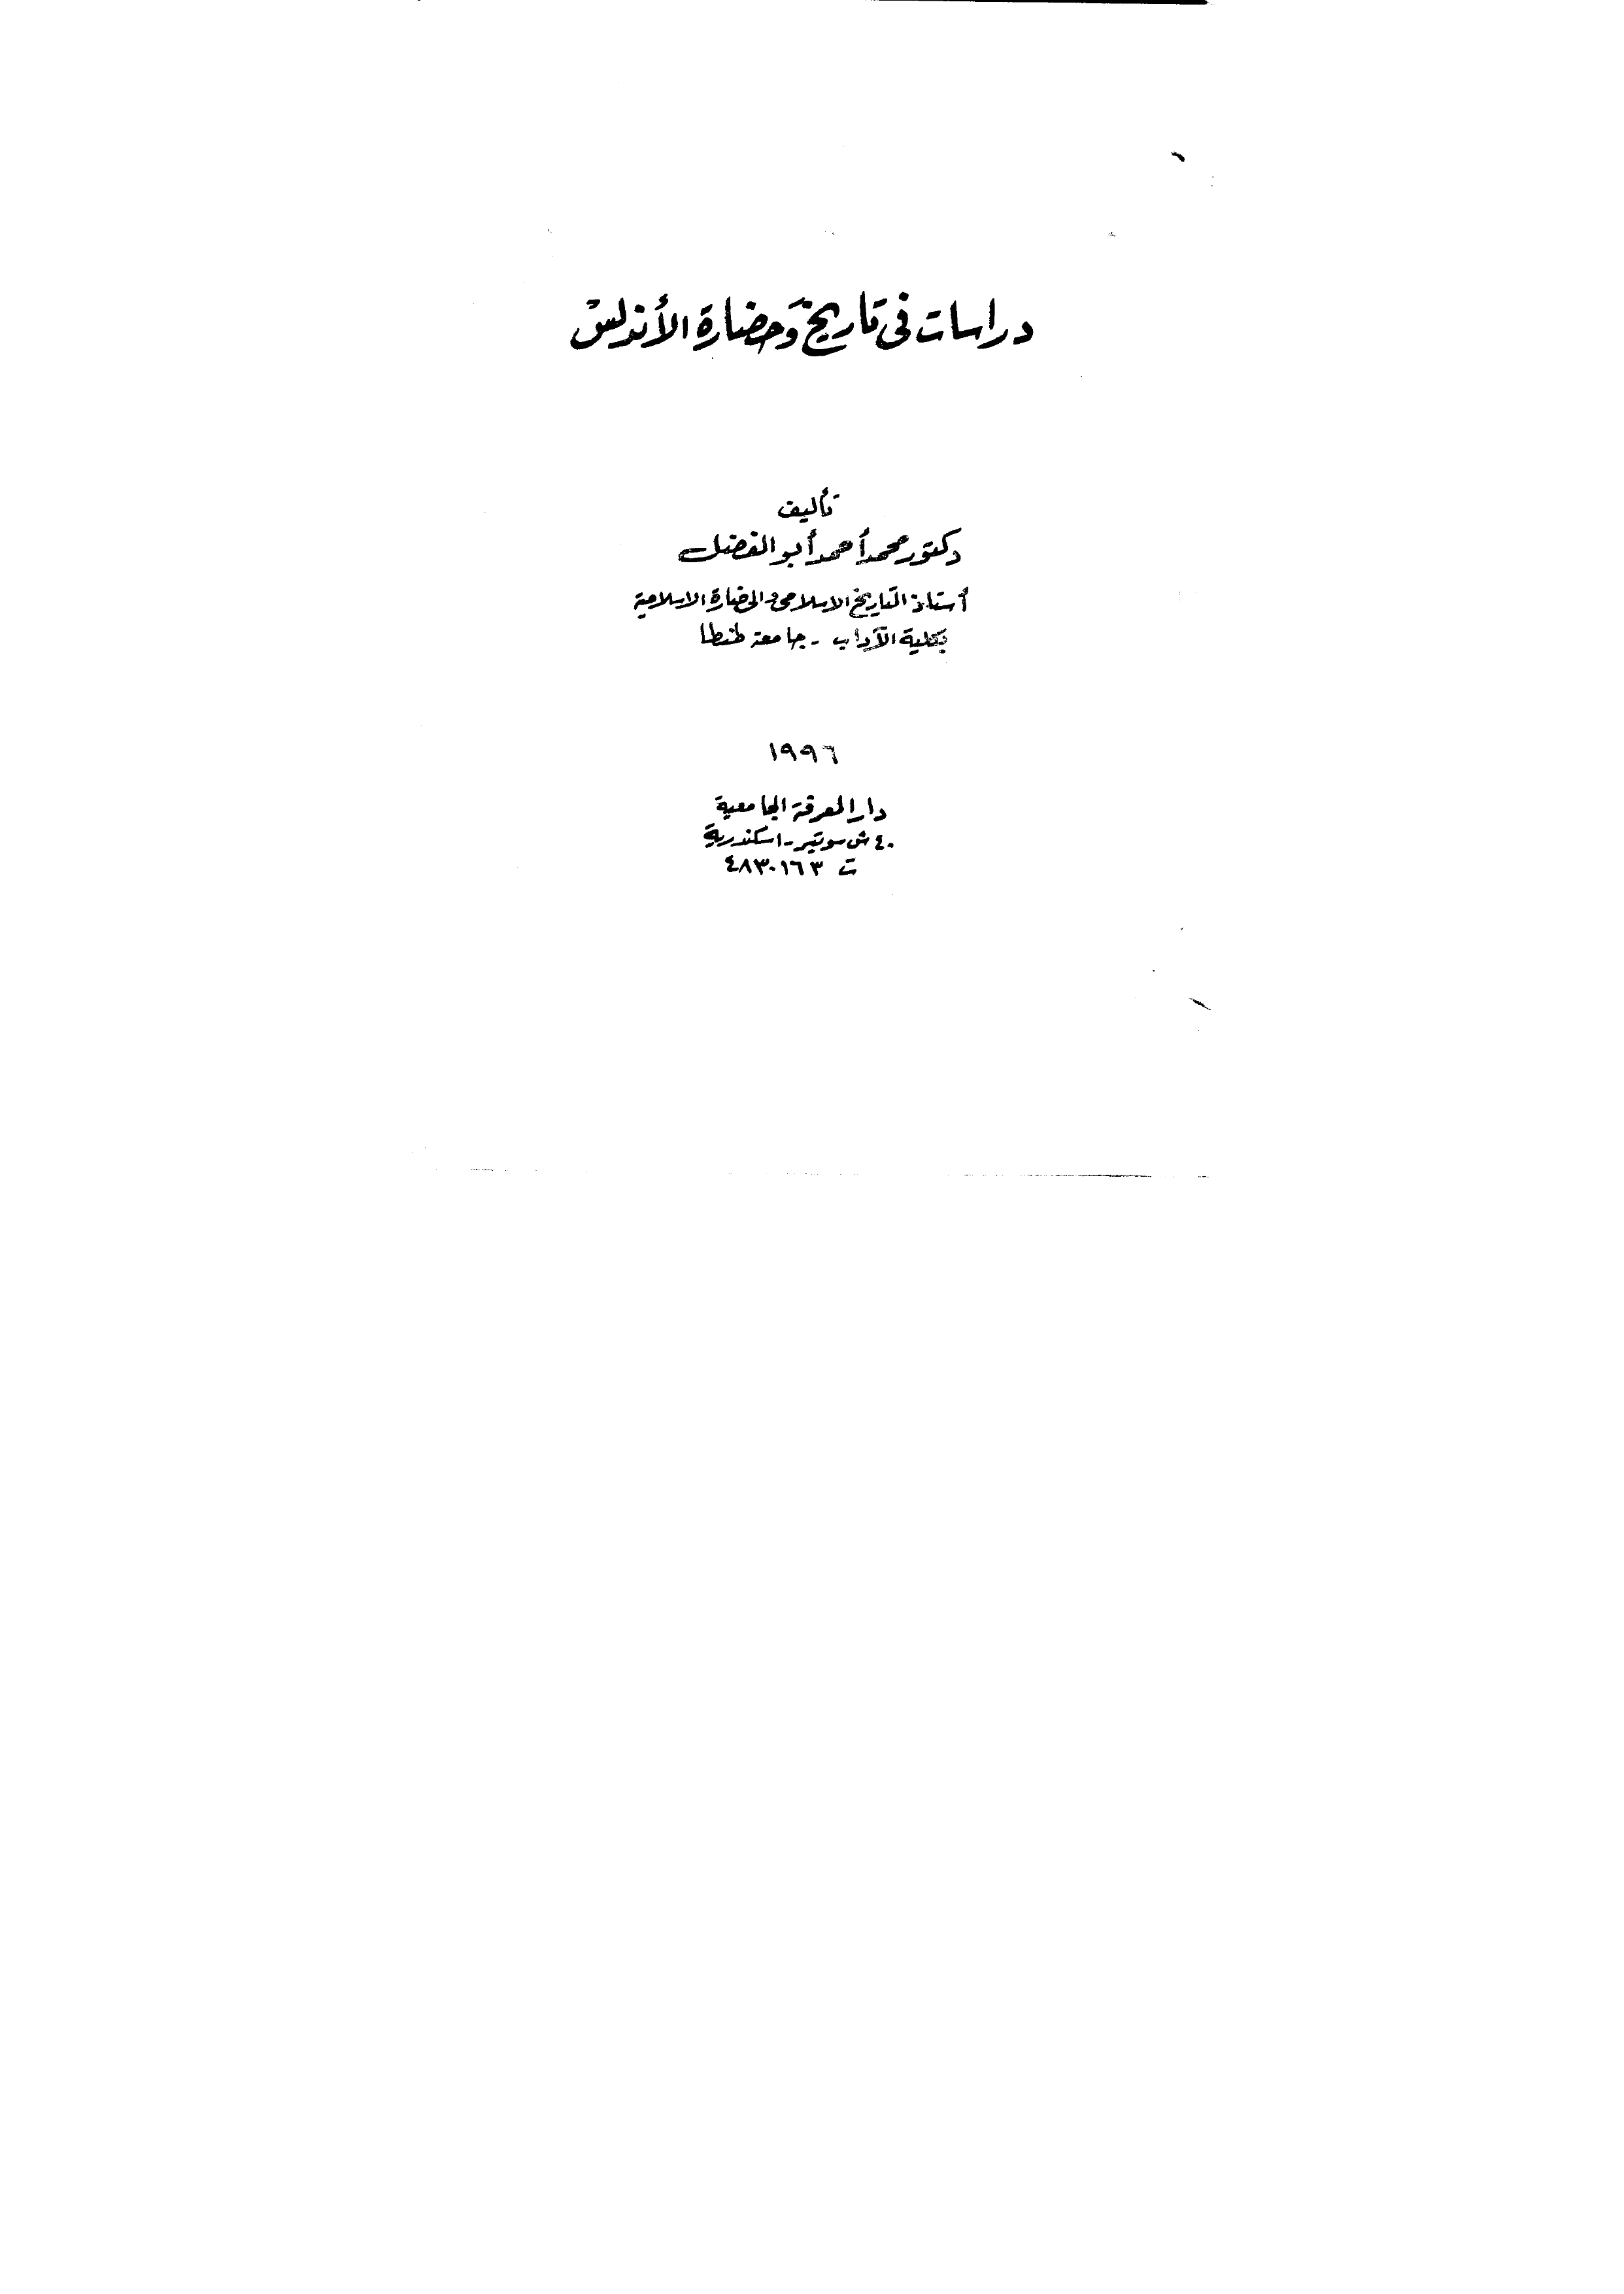 دراسات فى تاريخ وحضارة الأندلس
تأليف
دكتور محمد أحمد أبو الفضل
أستاذ التاريخ الاسلامى والحضارة الاسلامية
بكلية الآداب - جامعة طنطا
١٩٩٦
دار المعرفة الجامعية
٤٠ ش سوتير - اسكندرية
ت ٤٨٣٠١٦٣